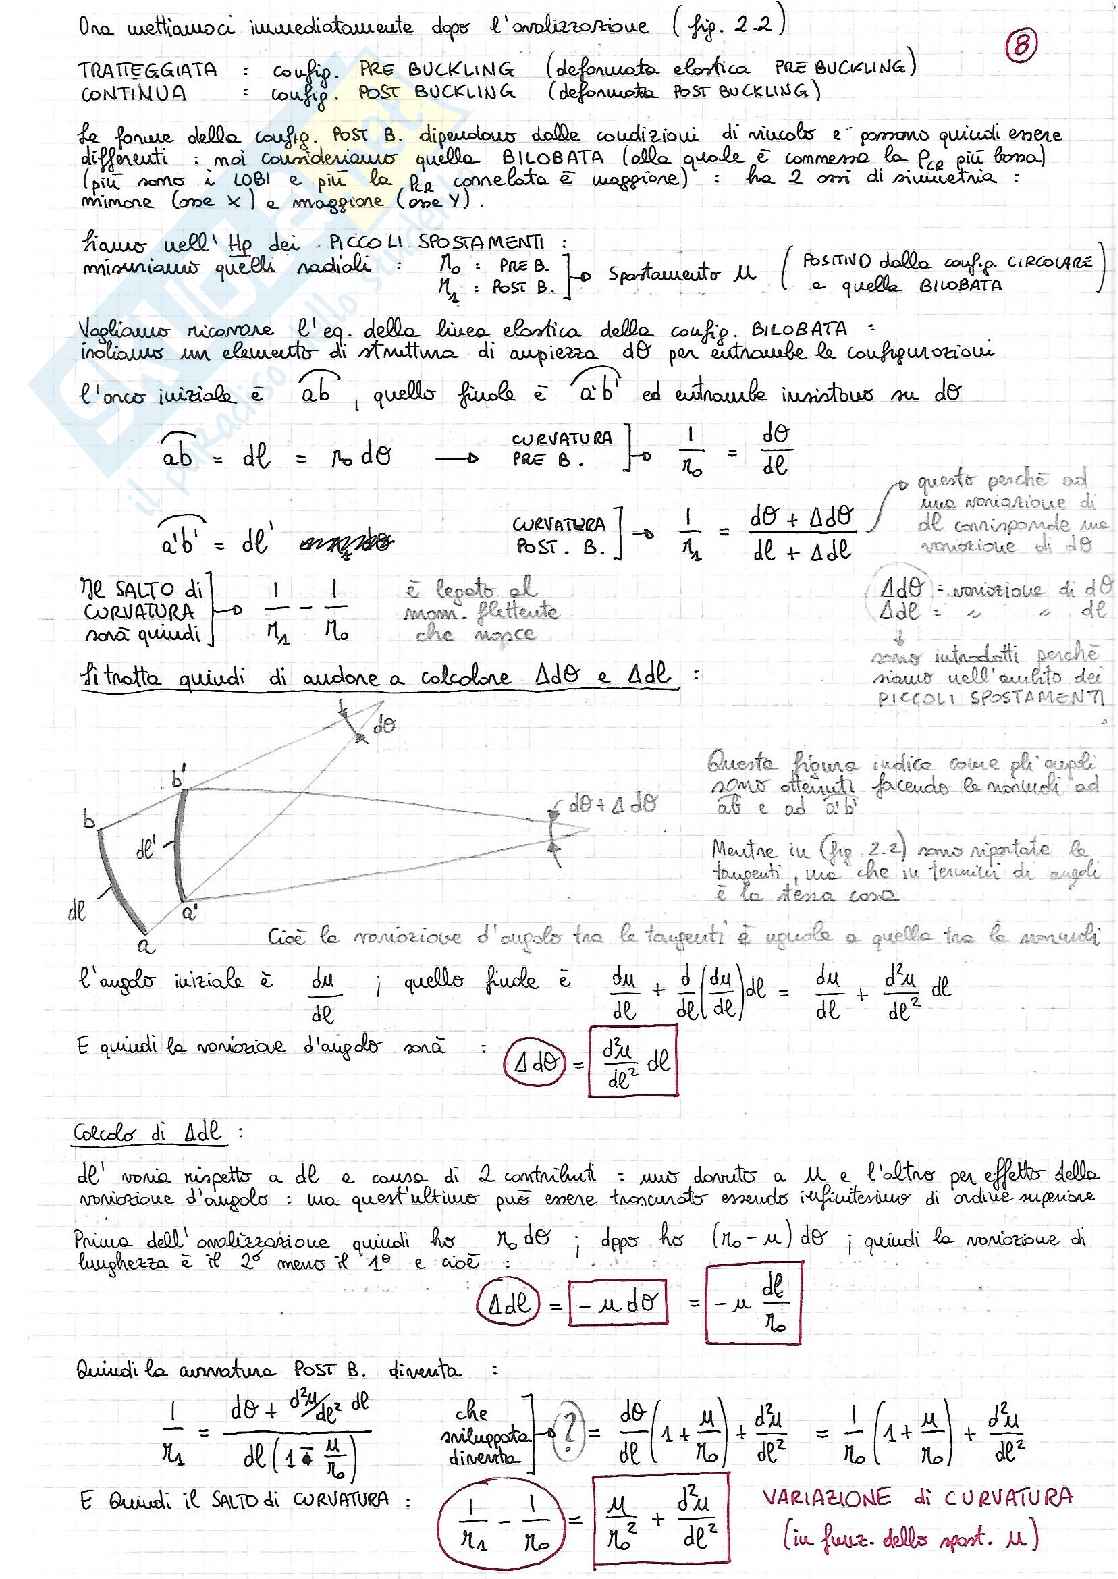 Ora mettiamoci immediatamente dopo l'ovalizzazione (fig. 2.2)
8
TRATTEGGIATA : config. PRE BUCKLING (deformata elastica PRE BUCKLING)
CONTINUA : config. POST BUCKLING (deformata POST BUCKLING)
Le forme della config. POST B. dipendono dalle condizioni di vincolo e possono quindi essere
differenti : noi consideriamo quella BILOBATA (alla quale è commessa la PCR più bassa)
(più sono i LOBI e più la PCR correlata è maggiore) : ha 2 assi di simmetria :
minore (asse X) e maggiore (asse Y).
Siamo nell' Hp dei PICCOLI SPOSTAMENTI :
misuriamo quelli radiali : r0 : PRE B. r1 : POST B. → spostamento u (POSITIVO dalla config. CIRCOLARE a quella BILOBATA)
Vogliamo ricavare l'eq. della linea elastica della config. BILOBATA :
isoliamo un elemento di struttura di ampiezza dθ per entrambe le configurazioni
l'arco iniziale è ab , quello finale è a'b' ed entrambe insistono su dθ
ab = dl = r0 dθ → CURVATURA PRE B. → 1/r0 = dθ/dl
a'b' = dl' CURVATURA POST. B. → 1/r1 = (dθ + Δdθ)/(dl + Δdl)
questo perchè ad
una variazione di
dl corrisponde una
variazione di dθ
Il SALTO di CURVATURA sarà quindi → 1/r1 - 1/r0 è legato al mom. flettente che nasce
Δdθ = variazione di dθ
Δdl = " " dl
↓
sono introdotti perchè
siamo nell'ambito dei
PICCOLI SPOSTAMENTI
Si tratta quindi di andare a calcolare Δdθ e Δdl :
dθ
b'
b
dl'
dθ + Δdθ
dl
a'
a
Questa figura indica come gli angoli
sono ottenuti facendo le normali ad
ab e ad a'b'
Mentre in (fig 2.2) sono riportate le
tangenti, ma che in termini di angoli
è la stessa cosa
Cioè la variazione d'angolo tra le tangenti è uguale a quella tra le normali
l'angolo iniziale è du/dl ; quello finale è du/dl + d/dl(du/dl)dl = du/dl + d²u/dl² dl
E quindi la variazione d'angolo sarà : Δdθ = d²u/dl² dl
Calcolo di Δdl :
dl' varia rispetto a dl a causa di 2 contributi : uno dovuto a u e l'altro per effetto della
variazione d'angolo : ma quest'ultimo può essere trascurato essendo infinitesimo di ordine superiore
Prima dell'ovalizzazione quindi ho r0 dθ ; dopo ho (r0 - u) dθ ; quindi la variazione di
lunghezza è il 2° meno il 1° e cioè :
Δdl = - u dθ = - u dl/r0
Quindi la curvatura POST B. diventa :
1/r1 = (dθ + d²u/dl² dl)/(dl(1 - u/r0)) che sviluppata diventa → ? = dθ/dl (1 + u/r0) + d²u/dl² = 1/r0 (1 + u/r0) + d²u/dl²
E Quindi il SALTO di CURVATURA : 1/r1 - 1/r0 = u/r0² + d²u/dl² VARIAZIONE di CURVATURA
(in funz. dello spost. u)